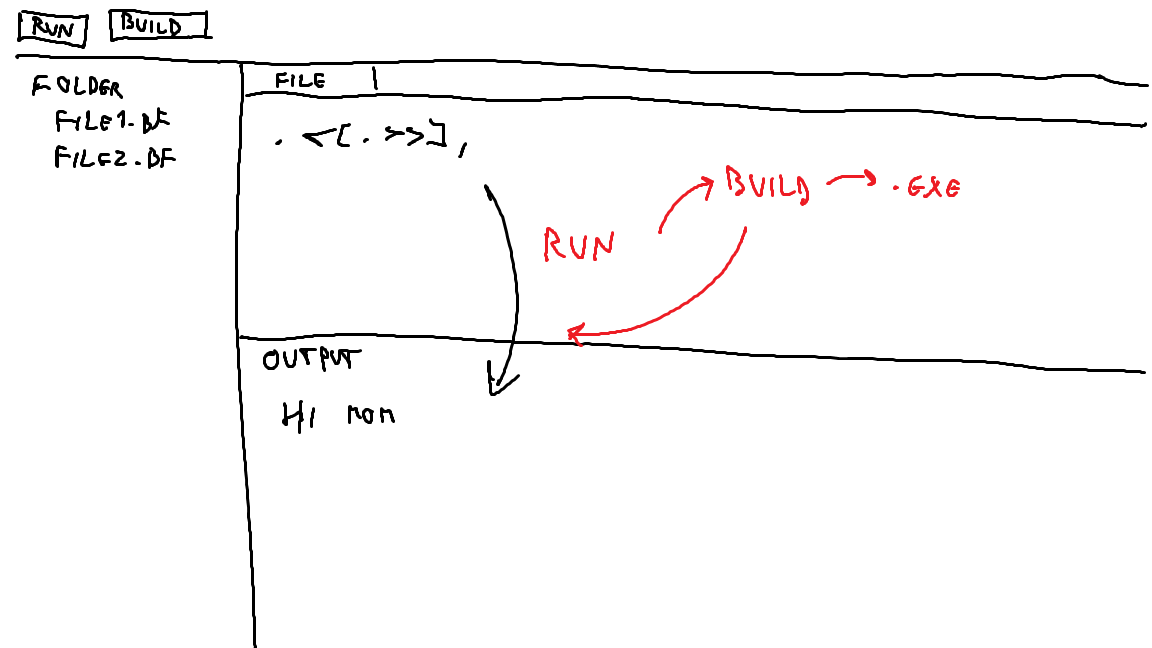 RUN BUILD
FOLDER
FILE1.BF
FILE2.BF
FILE
. <[.>>],
BUILD .EXE
RUN
OUTPUT
HI MOM